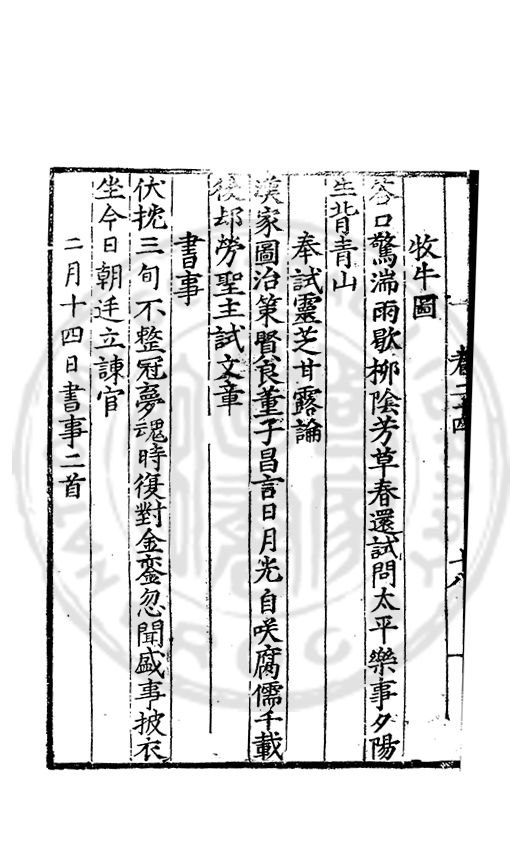 卷二十四
十八
牧牛圖
谷口驚湍雨歇柳陰芳草春還試問太平樂事夕陽
牛背青山
奉試靈芝甘露論
漢家圖治策賢良董子昌言日月光自咲腐儒千載
後却勞聖主試文章
書事
伏枕三旬不整冠夢魂時復對金鑾忽聞盛事披衣
坐今日朝廷立諫官
二月十四日書事二首